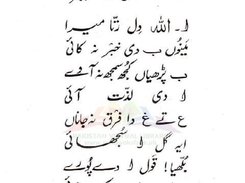 لا۔ اللہ دل رتّا میرا
مینوں ب دی خبر نہ کائی
ب پڑھیاں کجھ سمجھ نہ آوے
لا دی لذّت آئی
ع تے غ دا فرق نہ جاناں
ایہ گل لا سُجھائی
بلّھیا! قول لا دے پورے